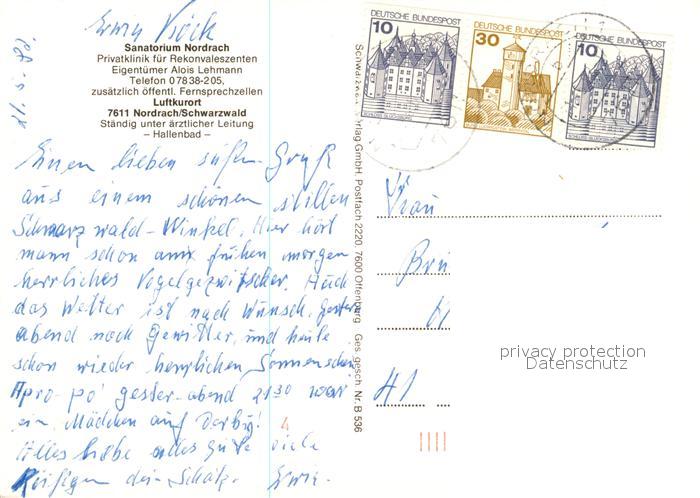 Erwin
21.5.80.
Sanatorium Nordrach
Privatklinik für Rekonvaleszenten
Eigentümer Alois Lehmann
Telefon 07838-205,
zusätzlich öffentl. Fernsprechzellen
Luftkurort
7611 Nordrach/Schwarzwald
Ständig unter ärztlicher Leitung
– Hallenbad –
Einen lieben süßen Gruß
aus einem schönen stillen
Schwarzwald-Winkel. Hier hört
mann schon am frühen morgen
herrliches Vogelgezwitscher. Auch
das Wetter ist nach Wunsch, gestern
abend noch Gewitter, und heute
schon wieder herrlichen Sonnenschein
Apro-po gester-abend 21³⁰ war
ein Mädchen auf Derby!
Alles liebe alles gute viele
dein Schatz. Erwin.
Schwarzwald Verlag GmbH, Postfach 2220, 7600 Offenburg Ges. gesch. Nr. B 536
10 DEUTSCHE BUNDESPOST
SCHLOSS GLÜCKSBURG
DEUTSCHE BUNDESPOST
30
DEUTSCHE BUNDESPOST
10
SCHLOSS GLÜCKSBURG
Frau
41
privacy protection
Datenschutz